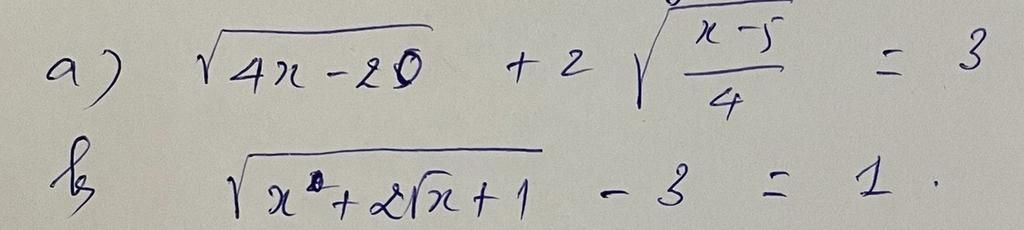 a) √(4x - 20) + 2√((x - 5)/4) = 3
b, √(x + 2√x + 1) - 3 = 1.